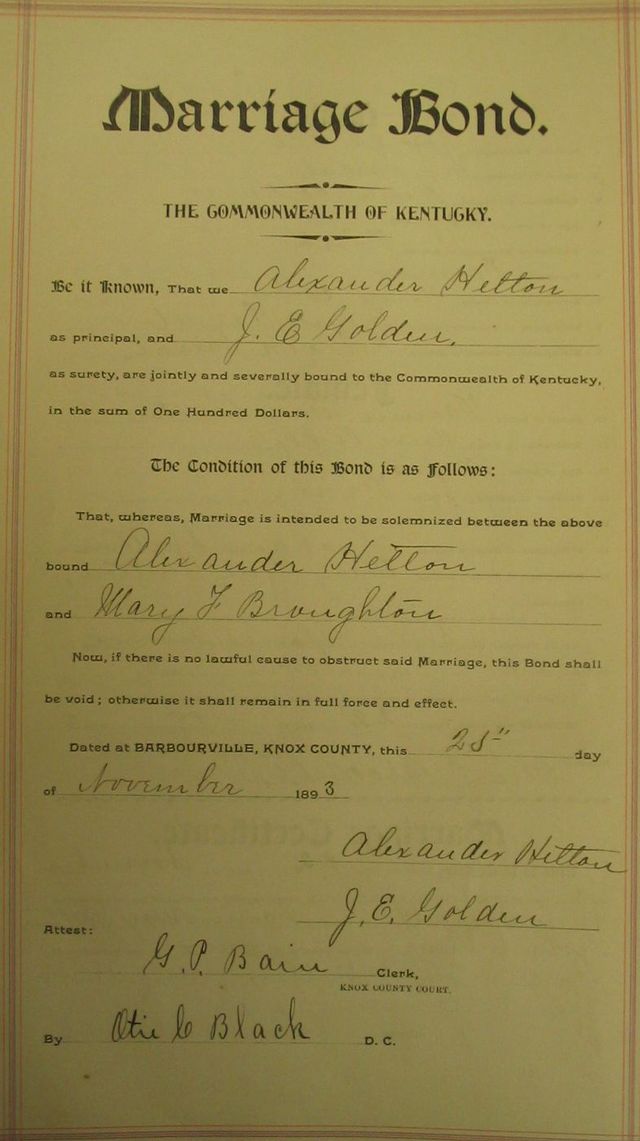 Marriage Bond.
THE COMMONWEALTH OF KENTUCKY.
Be it Known, That we Alexander Helton
as principal, and J. E Golden.
as surety, are jointly and severally bound to the Commonwealth of Kentucky,
in the sum of One Hundred Dollars.
The Condition of this Bond is as Follows:
That, whereas, Marriage is intended to be solemnized between the above
bound Alexander Helton
and Mary F Broughton
Now, if there is no lawful cause to obstruct said Marriage, this Bond shall
be void; otherwise it shall remain in full force and effect.
Dated at BARBOURVILLE, KNOX COUNTY, this 25" day
of November 1893
Alexander Helton
J. E. Golden
Attest:
G. P. Bain Clerk,
KNOX COUNTY COURT.
By Otie C Black D. C.